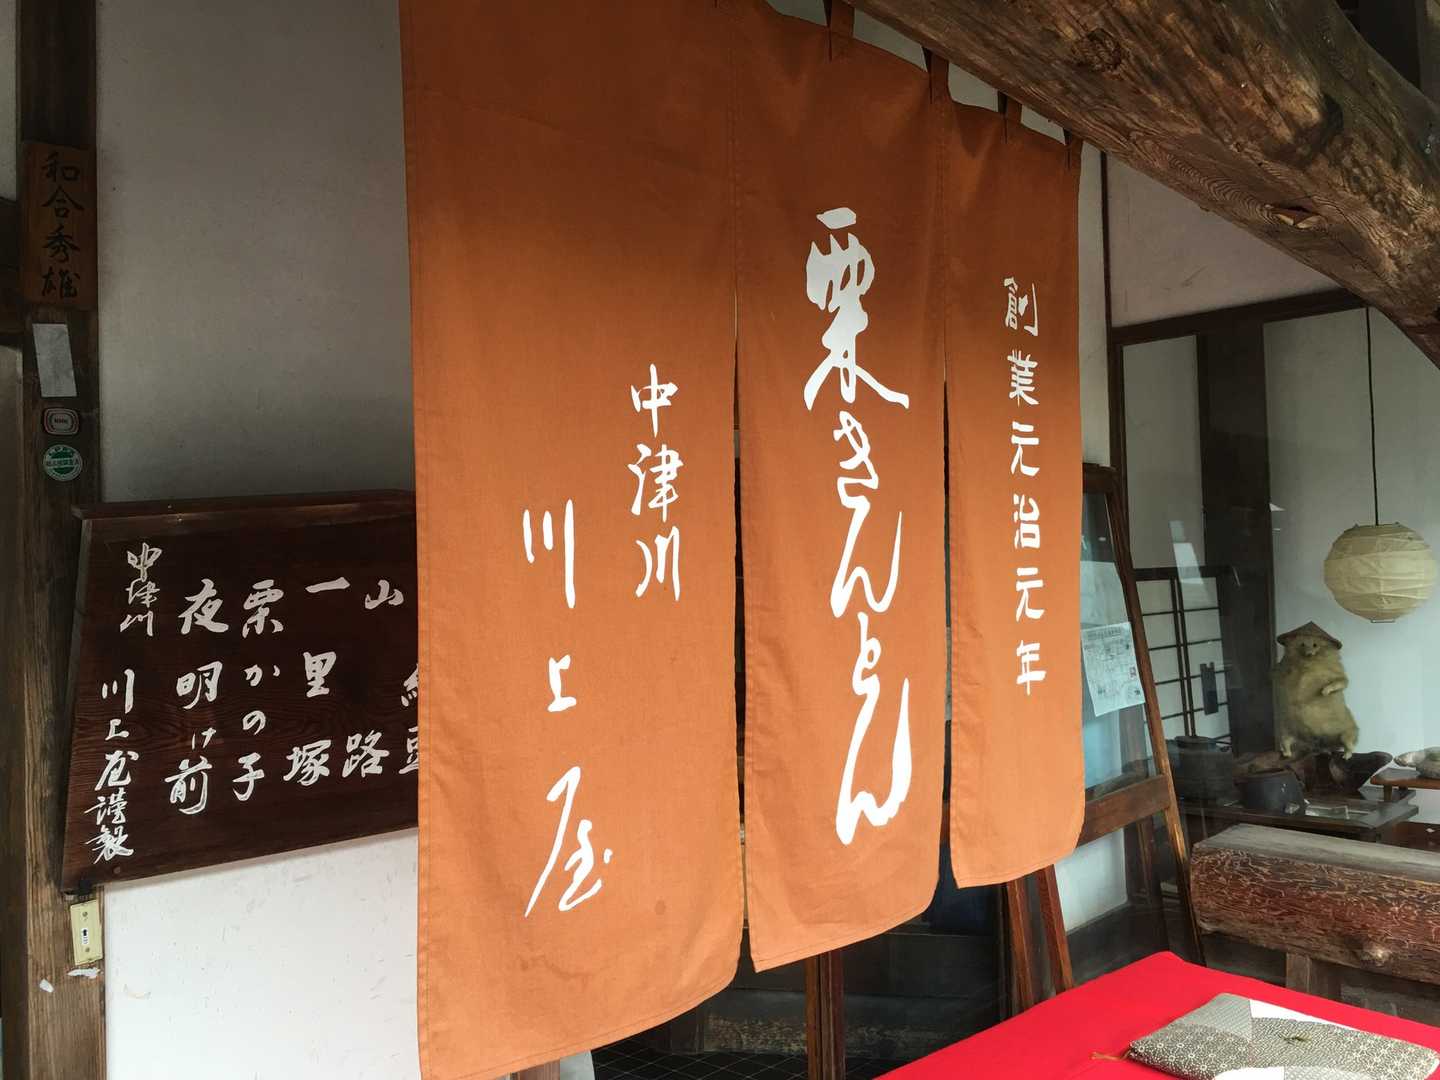 創業元治元年
栗きんとん
中津川
川上屋
山路
一里塚
栗かの子
夜明け前
中津川
川上屋謹製
和合秀雄
NHK